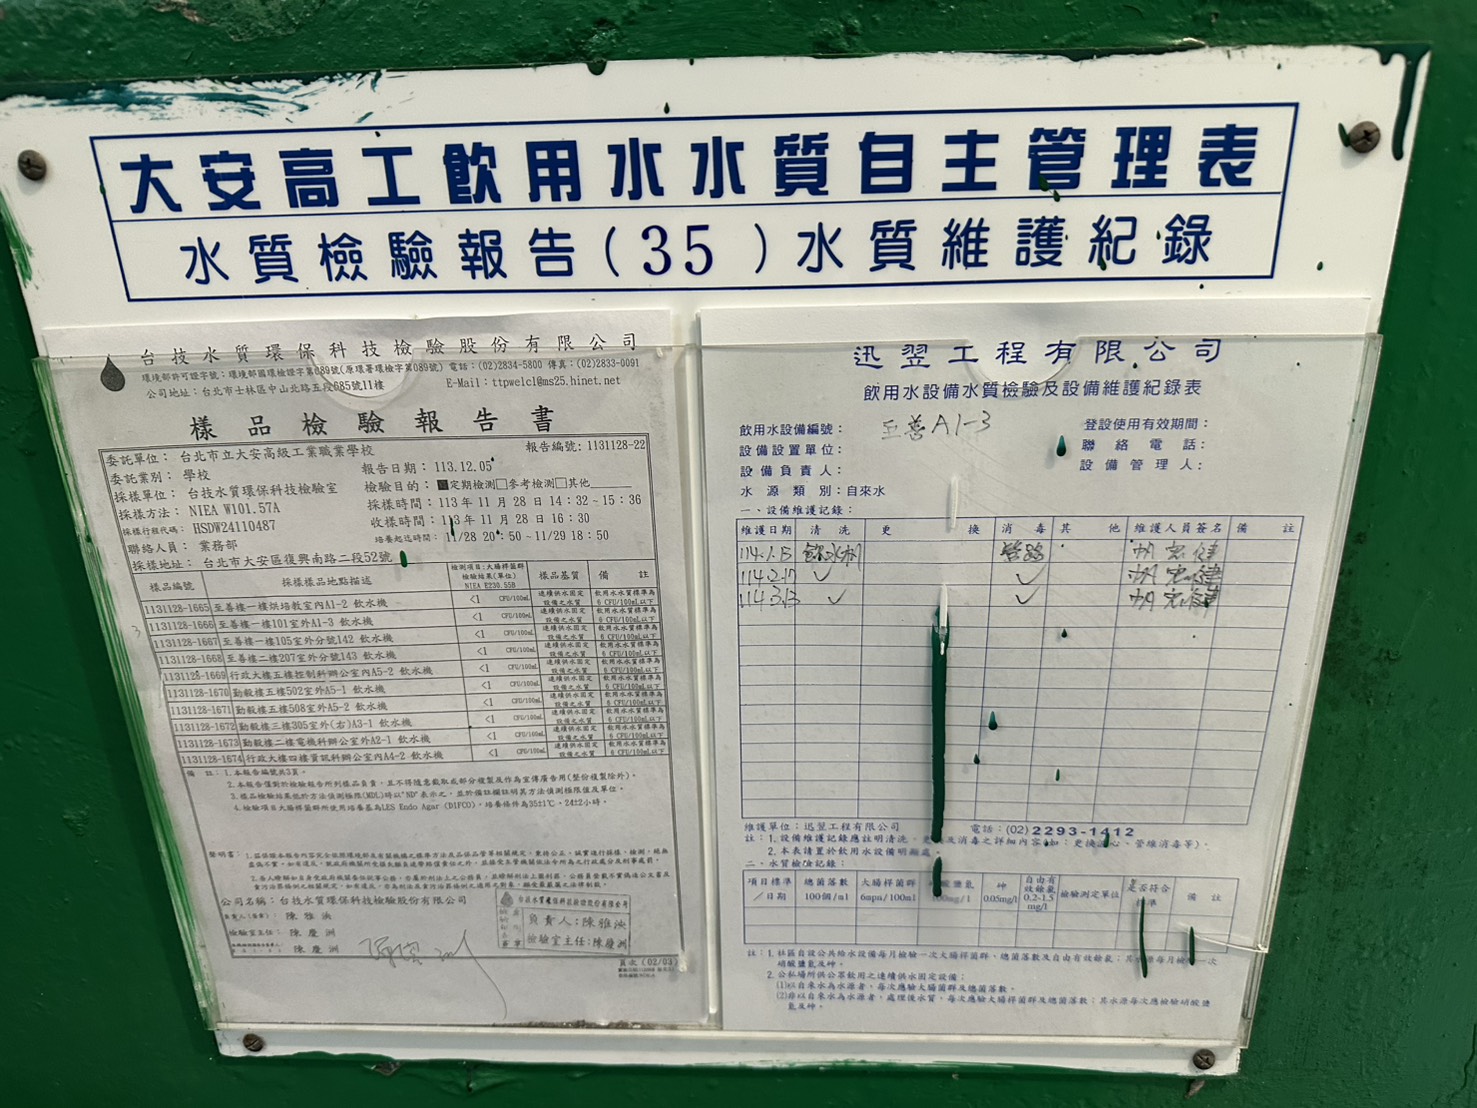 大安高工飲用水水質自主管理表
水質檢驗報告(35)水質維護紀錄
台技水質環保科技檢驗股份有限公司
環境部許可證字號：環境部國環檢證字第089號(原環署環檢字第089號) 電話：(02)2834-5800 傳真：(02)2833-0091
公司地址：台北市士林區中山北路五段685號11樓 E-Mail：ttpwelcl@ms25.hinet.net
樣品檢驗報告書
報告編號：1131128-22
委託單位：台北市立大安高級工業職業學校
委託業別：學校 報告日期：113.12.05
採樣單位：台技水質環保科技檢驗室 檢驗目的：■定期檢測□參考檢測□其他
採樣方法：NIEA W101.57A 採樣時間：113年11月28日14：32~15：36
採樣行程代碼：HSDW24110487 收樣時間：113年11月28日16：30
聯絡人員：業務部 培養起迄時間：11/28 20：50~11/29 18：50
採樣地址：台北市大安區復興南路二段52號
樣品編號 採樣樣品地點描述 檢測項目：大腸桿菌群 檢驗結果(單位) NIEA E230.55B 樣品基質 備註
1131128-1665 至善樓一樓烘培教室內A1-2 飲水機 <1 CFU/100mL 連續供水固定設備之水質 飲用水水質標準為6 CFU/100mL以下
1131128-1666 至善樓一樓101室外A1-3 飲水機 <1 CFU/100mL 連續供水固定設備之水質 飲用水水質標準為6 CFU/100mL以下
1131128-1667 至善樓一樓105室外分號142 飲水機 <1 CFU/100mL 連續供水固定設備之水質 飲用水水質標準為6 CFU/100mL以下
1131128-1668 至善樓二樓207室外分號143 飲水機 <1 CFU/100mL 連續供水固定設備之水質 飲用水水質標準為6 CFU/100mL以下
1131128-1669 行政大樓五樓控制科辦公室內A5-2 飲水機 <1 CFU/100mL 連續供水固定設備之水質 飲用水水質標準為6 CFU/100mL以下
1131128-1670 勤毅樓五樓502室外A5-1 飲水機 <1 CFU/100mL 連續供水固定設備之水質 飲用水水質標準為6 CFU/100mL以下
1131128-1671 勤毅樓五樓508室外A5-2 飲水機 <1 CFU/100mL 連續供水固定設備之水質 飲用水水質標準為6 CFU/100mL以下
1131128-1672 勤毅樓三樓305室外(右)A3-1 飲水機 <1 CFU/100mL 連續供水固定設備之水質 飲用水水質標準為6 CFU/100mL以下
1131128-1673 勤毅樓二樓電機科辦公室外A2-1 飲水機 <1 CFU/100mL 連續供水固定設備之水質 飲用水水質標準為6 CFU/100mL以下
1131128-1674 行政大樓四樓資訊科辦公室內A4-2 飲水機 <1 CFU/100mL 連續供水固定設備之水質 飲用水水質標準為6 CFU/100mL以下
備 註：1.本報告編號共3頁。
2.本報告僅對於檢驗報告所列樣品負責，且不得隨意截取或部分複製及作為宣傳廣告用(整份複製除外)。
3.樣品檢驗結果低於方法偵測極限(MDL)時以"ND"表示之，並於備註欄註明其方法偵測極限值及單位。
4.檢驗項目大腸桿菌群所使用培養基為LES Endo Agar (DIFCO)，培養條件為35±1℃、24±2小時。
公司名稱：台技水質環保科技檢驗股份有限公司
陳雅泱
檢驗室主任：陳慶洲
陳慶洲
台技水質環保科技檢驗股份有限公司
負責人：陳雅泱
檢驗室主任：陳慶洲
頁次(02/03)
迅翌工程有限公司
飲用水設備水質檢驗及設備維護紀錄表
飲用水設備編號：至善A1-3 登設使用有效期間：
設備設置單位： 聯絡電話：
設備負責人： 設備管理人：
水源類別：自來水
一、設備維護記錄：
維護日期 清洗 更換 消毒 其他 維護人員簽名 備註
114.1.15 飲水機 管路
114.2.17 ✓ ✓
114.3.13 ✓ ✓
維護單位：迅翌工程有限公司 電話：(02)2293-1412
註：1.設備維護記錄應註明清洗、更換及消毒之詳細內容(如：更換濾心、管線消毒等)。
2.本表請置於飲用水設備明顯處。
二、水質檢驗記錄：
項目標準／日期 總菌落數100個/ml 大腸桿菌群6mpn/100ml 硝酸鹽氮100mg/l 砷0.05mg/l 自由有效餘氯0.2-1.5mg/l 檢驗測定單位 是否符合標準 備註
註：1.社區自設公共給水設備每月檢驗一次大腸桿菌群、總菌落數及自由有效餘氯；其水源每月檢驗一次硝酸鹽氮及砷。
2.公私場所供公眾飲用之連續供水固定設備：
(1)以自來水為水源者，每次應驗大腸菌群及總菌落數。
(2)非以自來水為水源者，處理後水質，每次應驗大腸桿菌群及總菌落數；其水源每次應檢驗硝酸鹽氮及砷。